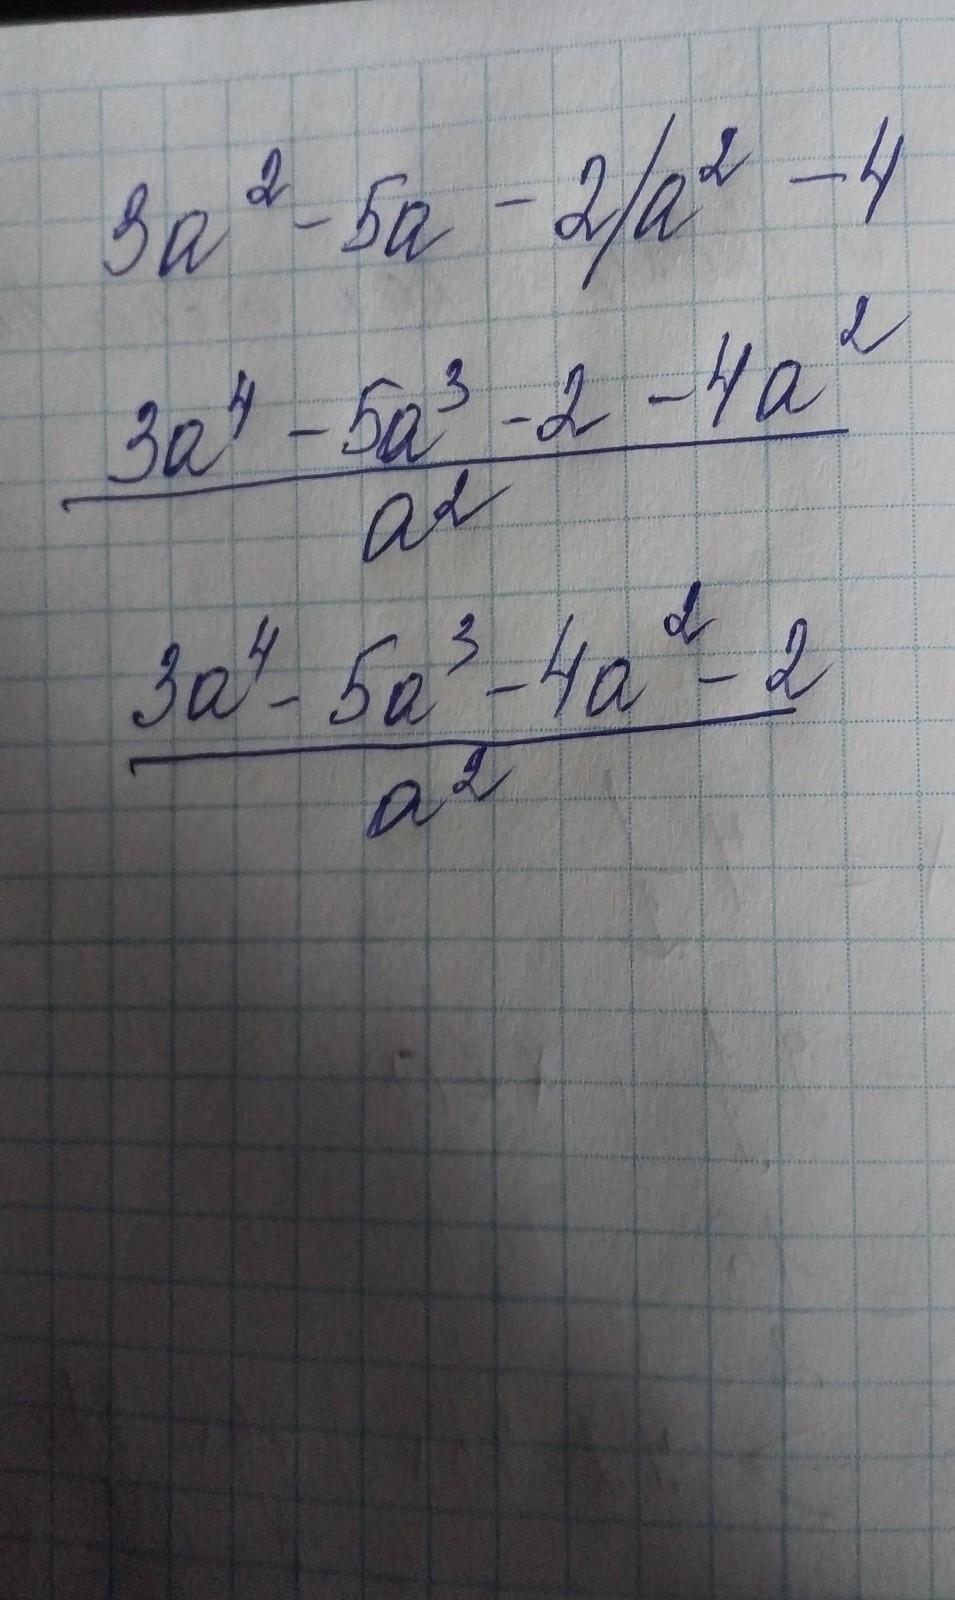 3a² - 5a - 2/a² - 4
3a⁴ - 5a³ - 2 - 4a²
a²
3a⁴ - 5a³ - 4a² - 2
a²